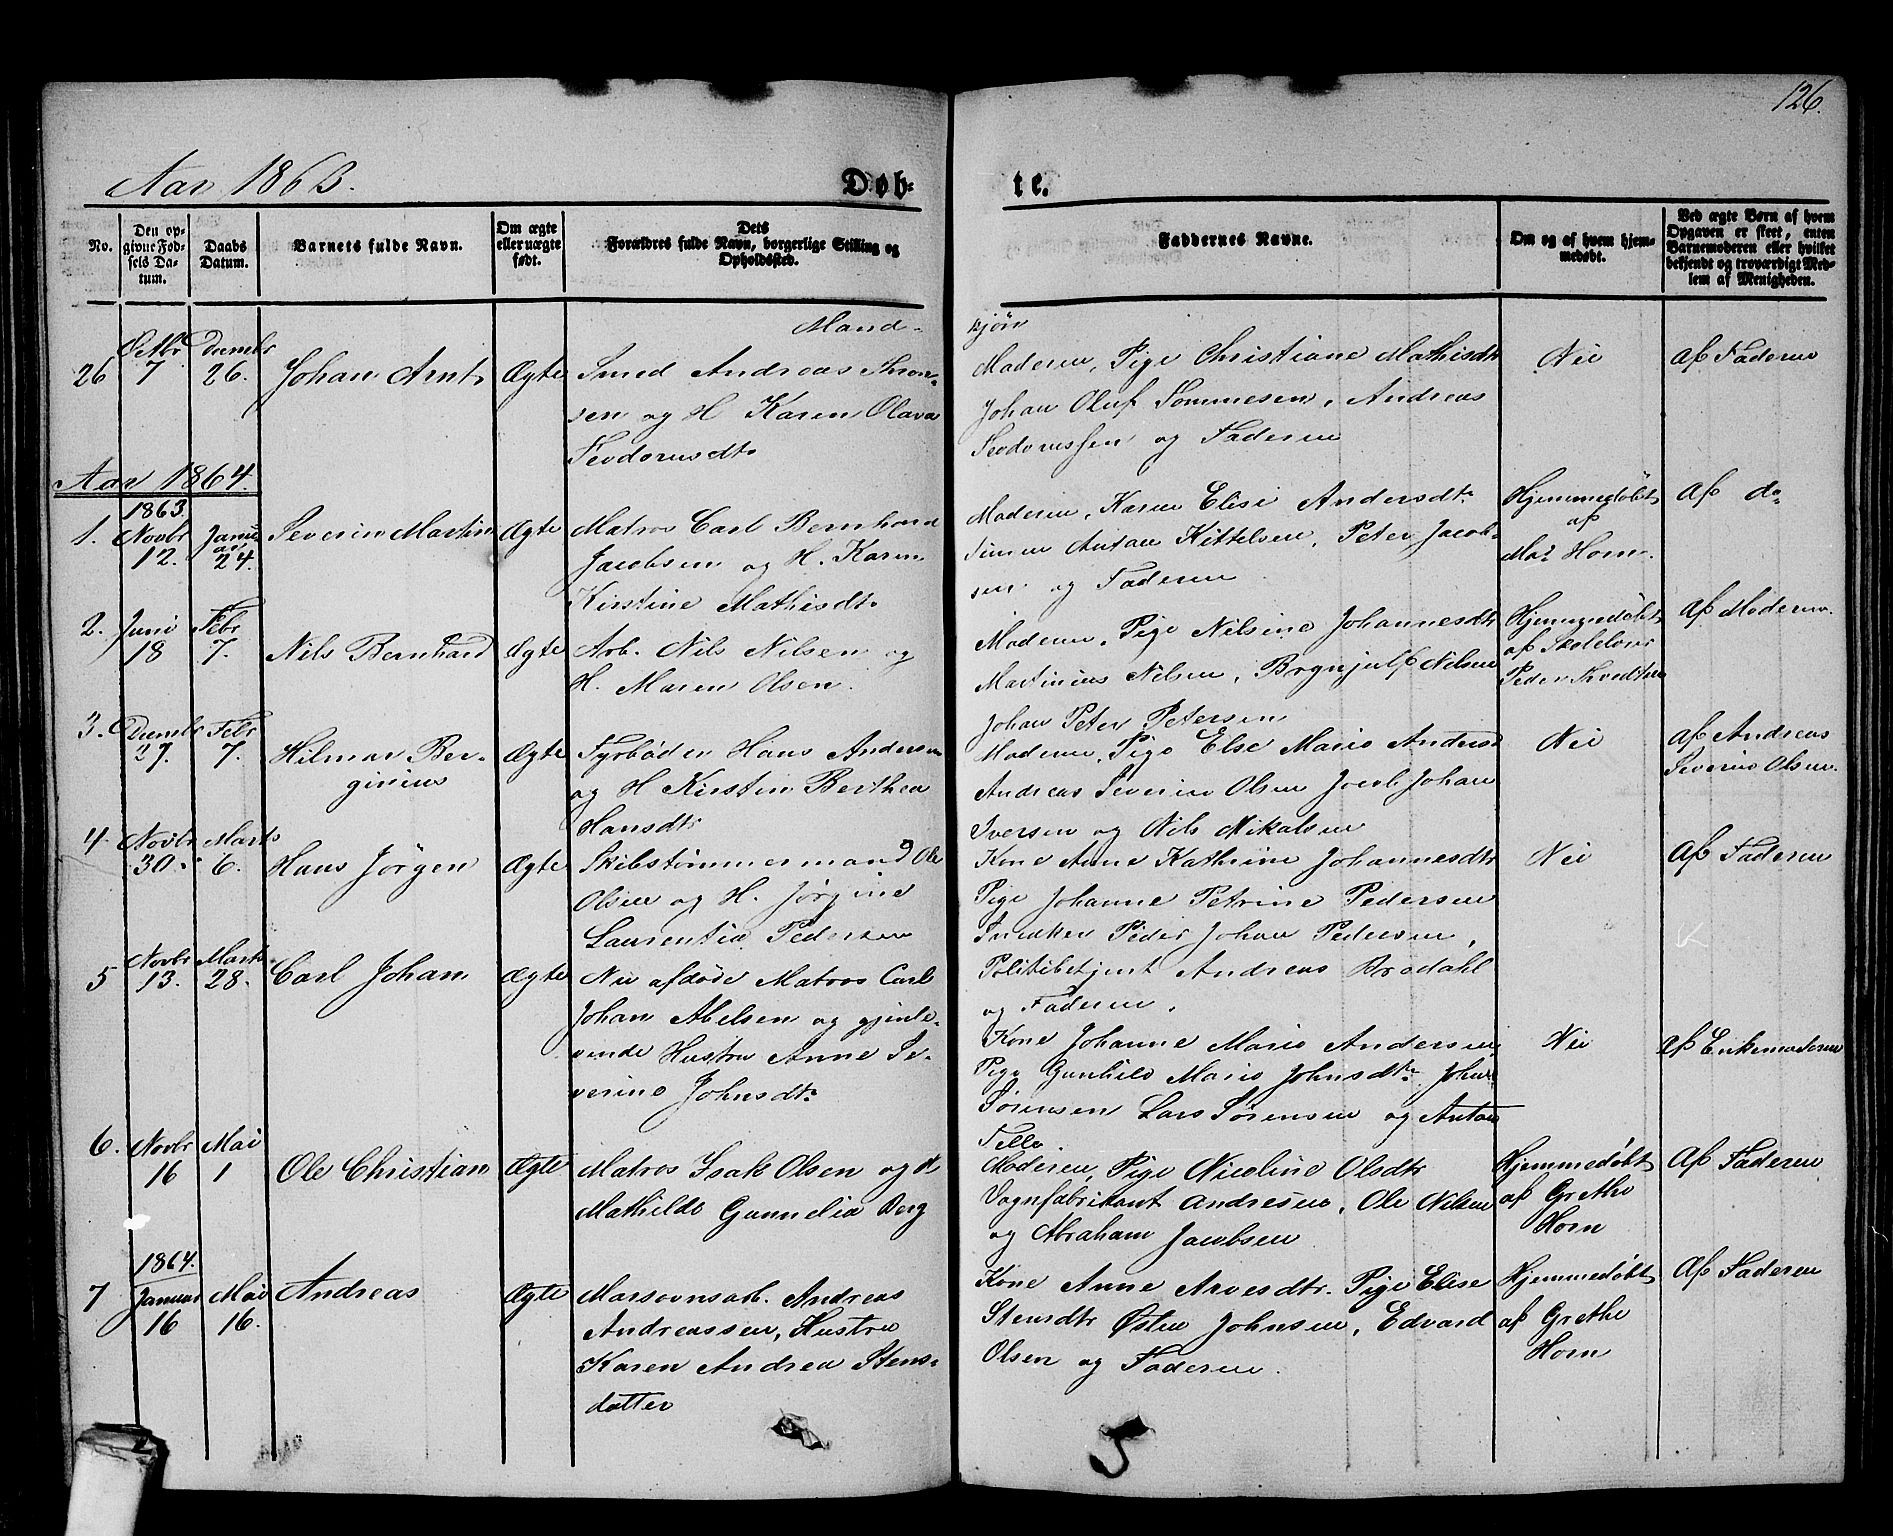 126.
Aar 1863.
Døb-
te.
No.
Den op-
givne Fød-
sels Da-
tum.
Daabs
Datum.
Barnets fulde Navn.
Om ægte
eller uægte
født.
Dets
Forældres fulde Navn, borgerlige Stilling og
Opholdssted.
Faddernes Navne.
Om og af hvem hjem-
medøbt.
Ved ægte Børn af hvem
Opgaven er skeet, enten
Barnemoderen eller hvilket
bekjendt og troværdigt Med-
lem af Menigheden.
Mand-
kjøn
26
Octbr
7
Decembr
26.
Johan Arnt
Ægte
Smed Andreas
sen og H Karen Olava
Teodorusdtr
Moderen, Pige Christiane Mathisdtr
Johan Oluf Tommesen, Andreas
Teodorussen og Faderen
Nei
Af Faderen
Aar 1864.
1863.
1.
Novbr
12.
Janu
ar
24.
Severin Martin
Ægte
Matros Carl Bernhard
Jacobsen og H. Karen
Kirstine Mathisdtr
Moderen, Karen Elise Andersdtr
Simen Antan Kittelsen, Peter Jacob-
sen og Faderen
Hjemmedøbt
af
Mad Horn.
Af do
2.
Juni
18
Febr
7.
Nils Bernhard
Ægte
Arb. Nils Nilsen og
H. Maren Olsen.
Moderen, Pige Nilsine Johannesdtr
Martinius Nilsen, Brynjulf Nilsen
Johan Peter Petersen
Hjemmedøbt
af Skolelærer
Peder
Af Moderen.
3.
Decembr
27.
Febr
7.
Hilmar Ber-
ginius
Ægte
Fyrbøder Hans Andersen
og H Kirstin Berthea
Hansdtr
Moderen, Pige Else Marie Andersd
Andreas Severin Olsen Jacob Johan
Iversen og Nils Nikalsen
Nei
Af Andreas
Severin Olsen.
4.
Novbr
30.
Marts
6.
Hans Jörgen
Ægte
Skibstømmermand Ole
Olsen og H. Jørgine
Laurentia Pedersen
Kone Anne Kathrine Johannesdtr
Pige Johanne Petrine Pedersen
Snedker Peder Johan Pedersen,
Politibetjent Andreas Brodahl
og Faderen.
Nei
Af Faderen
5
Novbr
13.
Marts
28.
Carl Johan
Ægte
Nu afdöde Matros Carl
Johan Abelsen og gjenle-
vende Hustru Anne Se-
verine Johnsdtr
Kone Johanne Marie Andersen,
Pige Gunhild Marie Johnsdtr Johan
Sørensen Lars Sørensen og Antan
Nei
Af Enkemoderen
6.
Novbr
16
Mai
1
Ole Christian
Ægte
Matros Isak Olsen og H
Mathilde Gunnelia Berg
Moderen, Pige Nicoline Olsdtr
Vognfabrikant Andresen, Ole Nilsen
og Abraham Jacobsen
Hjemmedøbt
af Grethe
Horn
Af Faderen
1864.
7
Januar
16
Mai
16.
Andreas
Ægte
Marsovnsarb. Andreas
Andreassen, Hustru
Karen Andrea Stens-
datter
Kone Anne Arvesdtr. Pige Elise
Stensdtr Østen Johnsen, Edvard
Olsen og Faderen.
Hjemmedøbt
af Grethe
Horn
Af Faderen